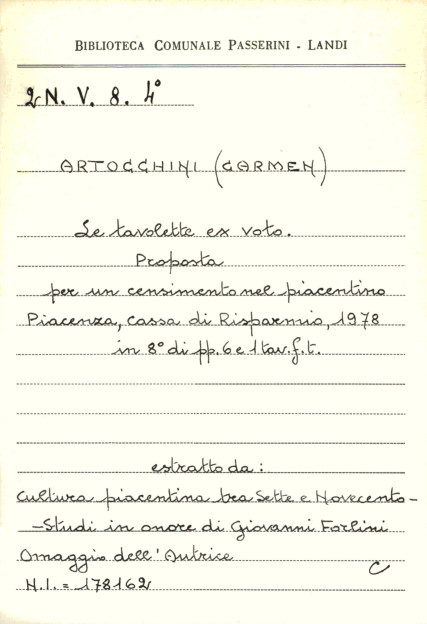 BIBLIOTECA COMUNALE PASSERINI - LANDI
2N. V. 8. 4°
ARTOCCHINI (CARMEN)
Le tavolette ex voto.
Proposta
per un censimento nel piacentino
Piacenza, Cassa di Risparmio, 1978
in 8° di pp. 6 e 1 tav. f. t.
estratto da:
Cultura piacentina tra Sette e Novecento -
- Studi in onore di Giovanni Forlini
Omaggio dell'Autrice
C
N.I. = 178162